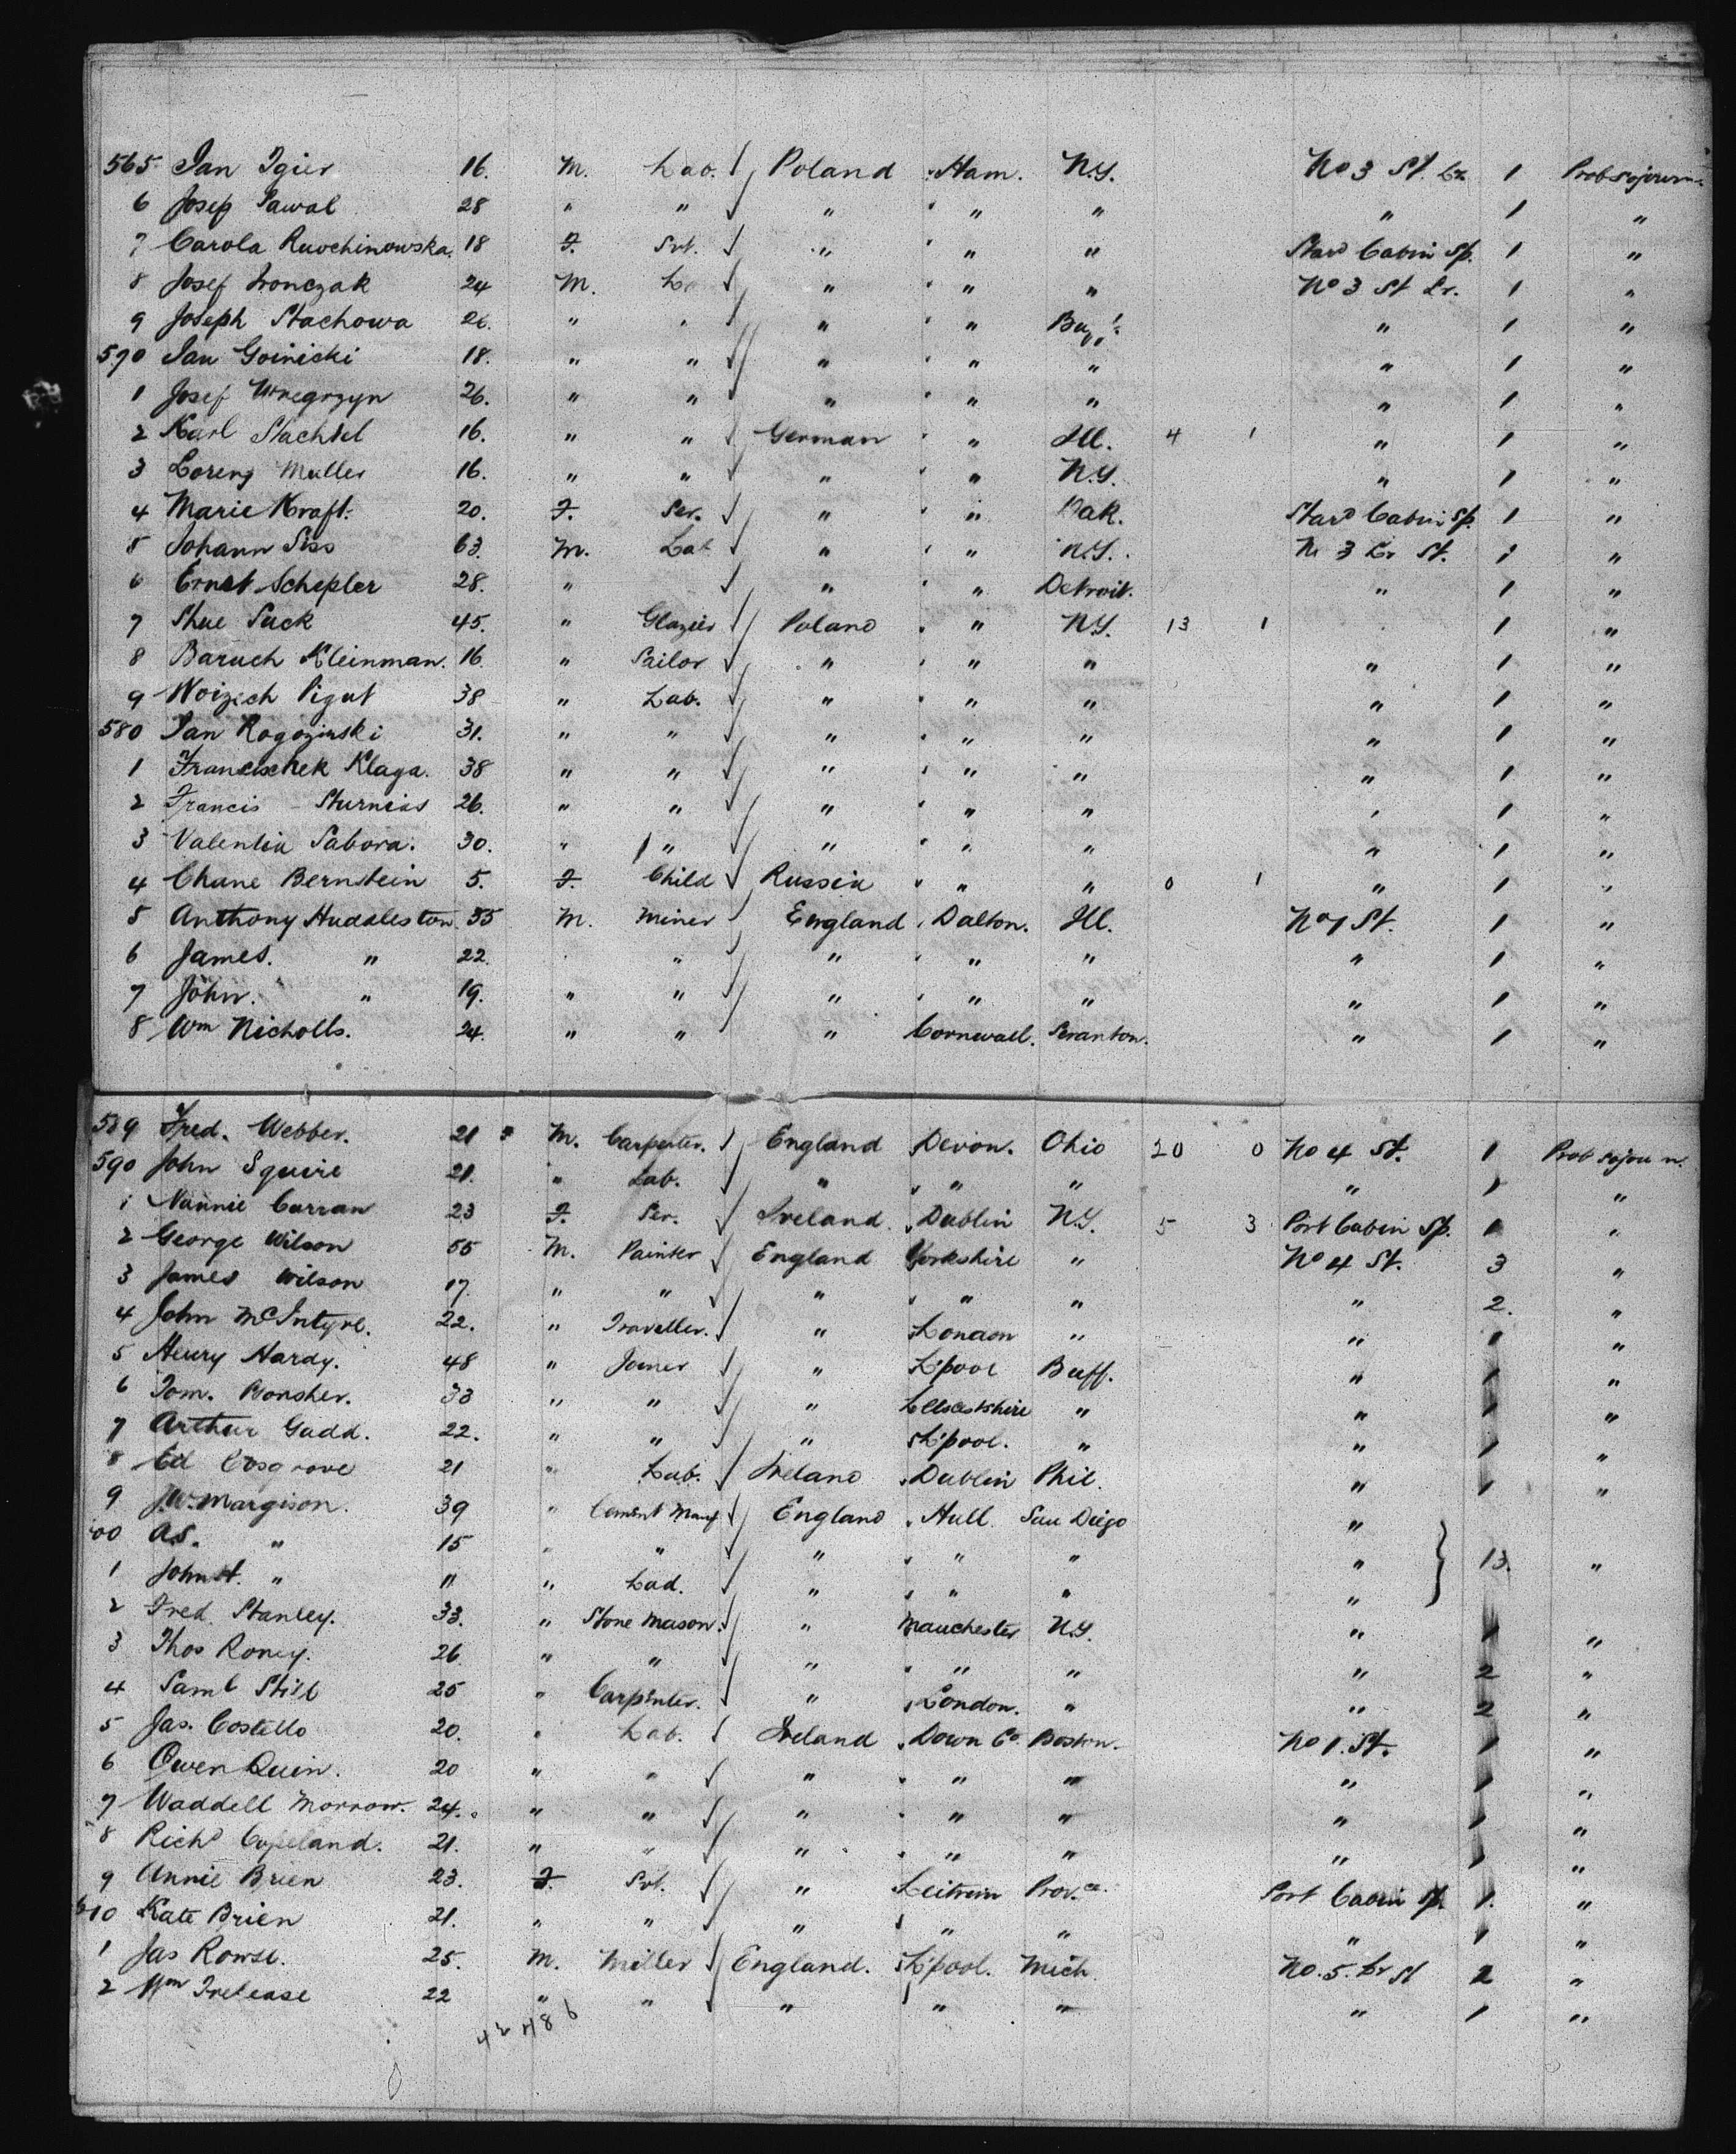 565 Jan Igier 16. M. Lab. Poland Ham. N.Y. No 3 St. Lr. 1 Prob sojourn
6 Josef Pawal 28 " " " " " " 1 "
7 Carola Ruochinowska. 18 F. Svt. " " " Starb Cabin Sp. 1 "
8 Josef 24 M. " " " No 3 St Lr. 1 "
9 Joseph Stachowa 26. " " " " " 1 "
570 Jan Goinicki 18. " " " " " " 1 "
1 Josef Wregrzyn 26. " " " " " " 1 "
2 Karl Stachtel 16. " " German " Ill. 4 1 " 1 "
3 Lorenz Muller 16. " " " " N.Y. " 1 "
4 Marie Kraft. 20. F. Ser. " " Dak. Starb Cabin Sp. 1 "
5 Johann Siss 63. M. Lab " " N.Y. No 3 Lr St. 1 "
6 Ernst Schepler 28. " " " Detroit. " 1 "
7 Shue Suck 45. " Glazier Poland " N.Y. 13 1 1 "
8 Baruch Kleinman. 16. " Tailor " " " " 1 "
9 Woizech Pigut 38 " Lab. " " " " 1 "
580 Jan Rogozinski 31. " " " " " " 1 "
1 Francischek Klaga. 38 " " " " " " 1 "
2 Francis Sturnias 26. " " " " " " 1 "
3 Valentin Sabora. 30. " " " " " " 1 "
4 Chane Bernstein 5. F. Child Russia " " 0 1 " 1 "
5 Anthony Huddleston 55 M. Miner England Dalton. Ill. No 1 St. 1 "
6 James. " 22. " " " " " " 1 "
7 John. " 19. " " " " " " 1 "
8 Wm Nicholls. 24. " " " Cornwall. Scranton. " 1 "
589 Fred. Webber. 21 M. Carpenter. England Devon. Ohio 20 0 No 4 St. 1 Prob sojou n.
590 John Squire 21. " Lab. " " " " 1 "
1 Nannie Curran 23 F. Ser. Ireland. Dublin N.Y. 5 3 Port Cabin Sp. 1 "
2 George Wilson 55 M. Painter England Yorkshire " No 4 St. 3 "
3 James Wilson 17. " " " " " " 2. "
4 John McIntyre. 22. " Traveller. " London " " 1 "
5 Henry Hardy. 48 " Joiner " L'pool Buff. " 1 "
6 Tom. 33 " " " " " 1 "
7 Arthur Gadd. 22. " " " L'pool. " " 1 "
8 Ed Cosgrove 21 " Lab. Ireland Dublin Phil. " 1 "
9 J.W. Margison. 39 " Cement Manf England Hull. San Diego "
00 A.S. " 15 " " " " " " 13. "
1 John H. " 11 " Lad. " " " "
2 Fred. Stanley. 33. " Stone Mason. " Manchester N.Y. " 1 "
3 Thos Roney. 26 " " " " " " 2 "
4 Saml Still 25 " Carpenter. " London. " " 2 "
5 Jas. Costello 20. " Lab. Ireland Down Co. Boston. No 1. St. 1 "
6 Owen Quin. 20 " " " " " " 1 "
7 Waddell Morrow. 24. " " " " " " 1 "
8 Richd Copeland. 21. " " " " " " 1 "
9 Annie Brien 23. F. Svt. " Leitrim Prov.ce. Port Cabin Sp. 1. "
610 Kate Brien 21. " " " " " " 1 "
1 Jas Rowse. 25. M. Miller England. L'pool. Mich. No. 5. Lr St 2 "
2 Wm Trelease 22 " " " " " " 1 "